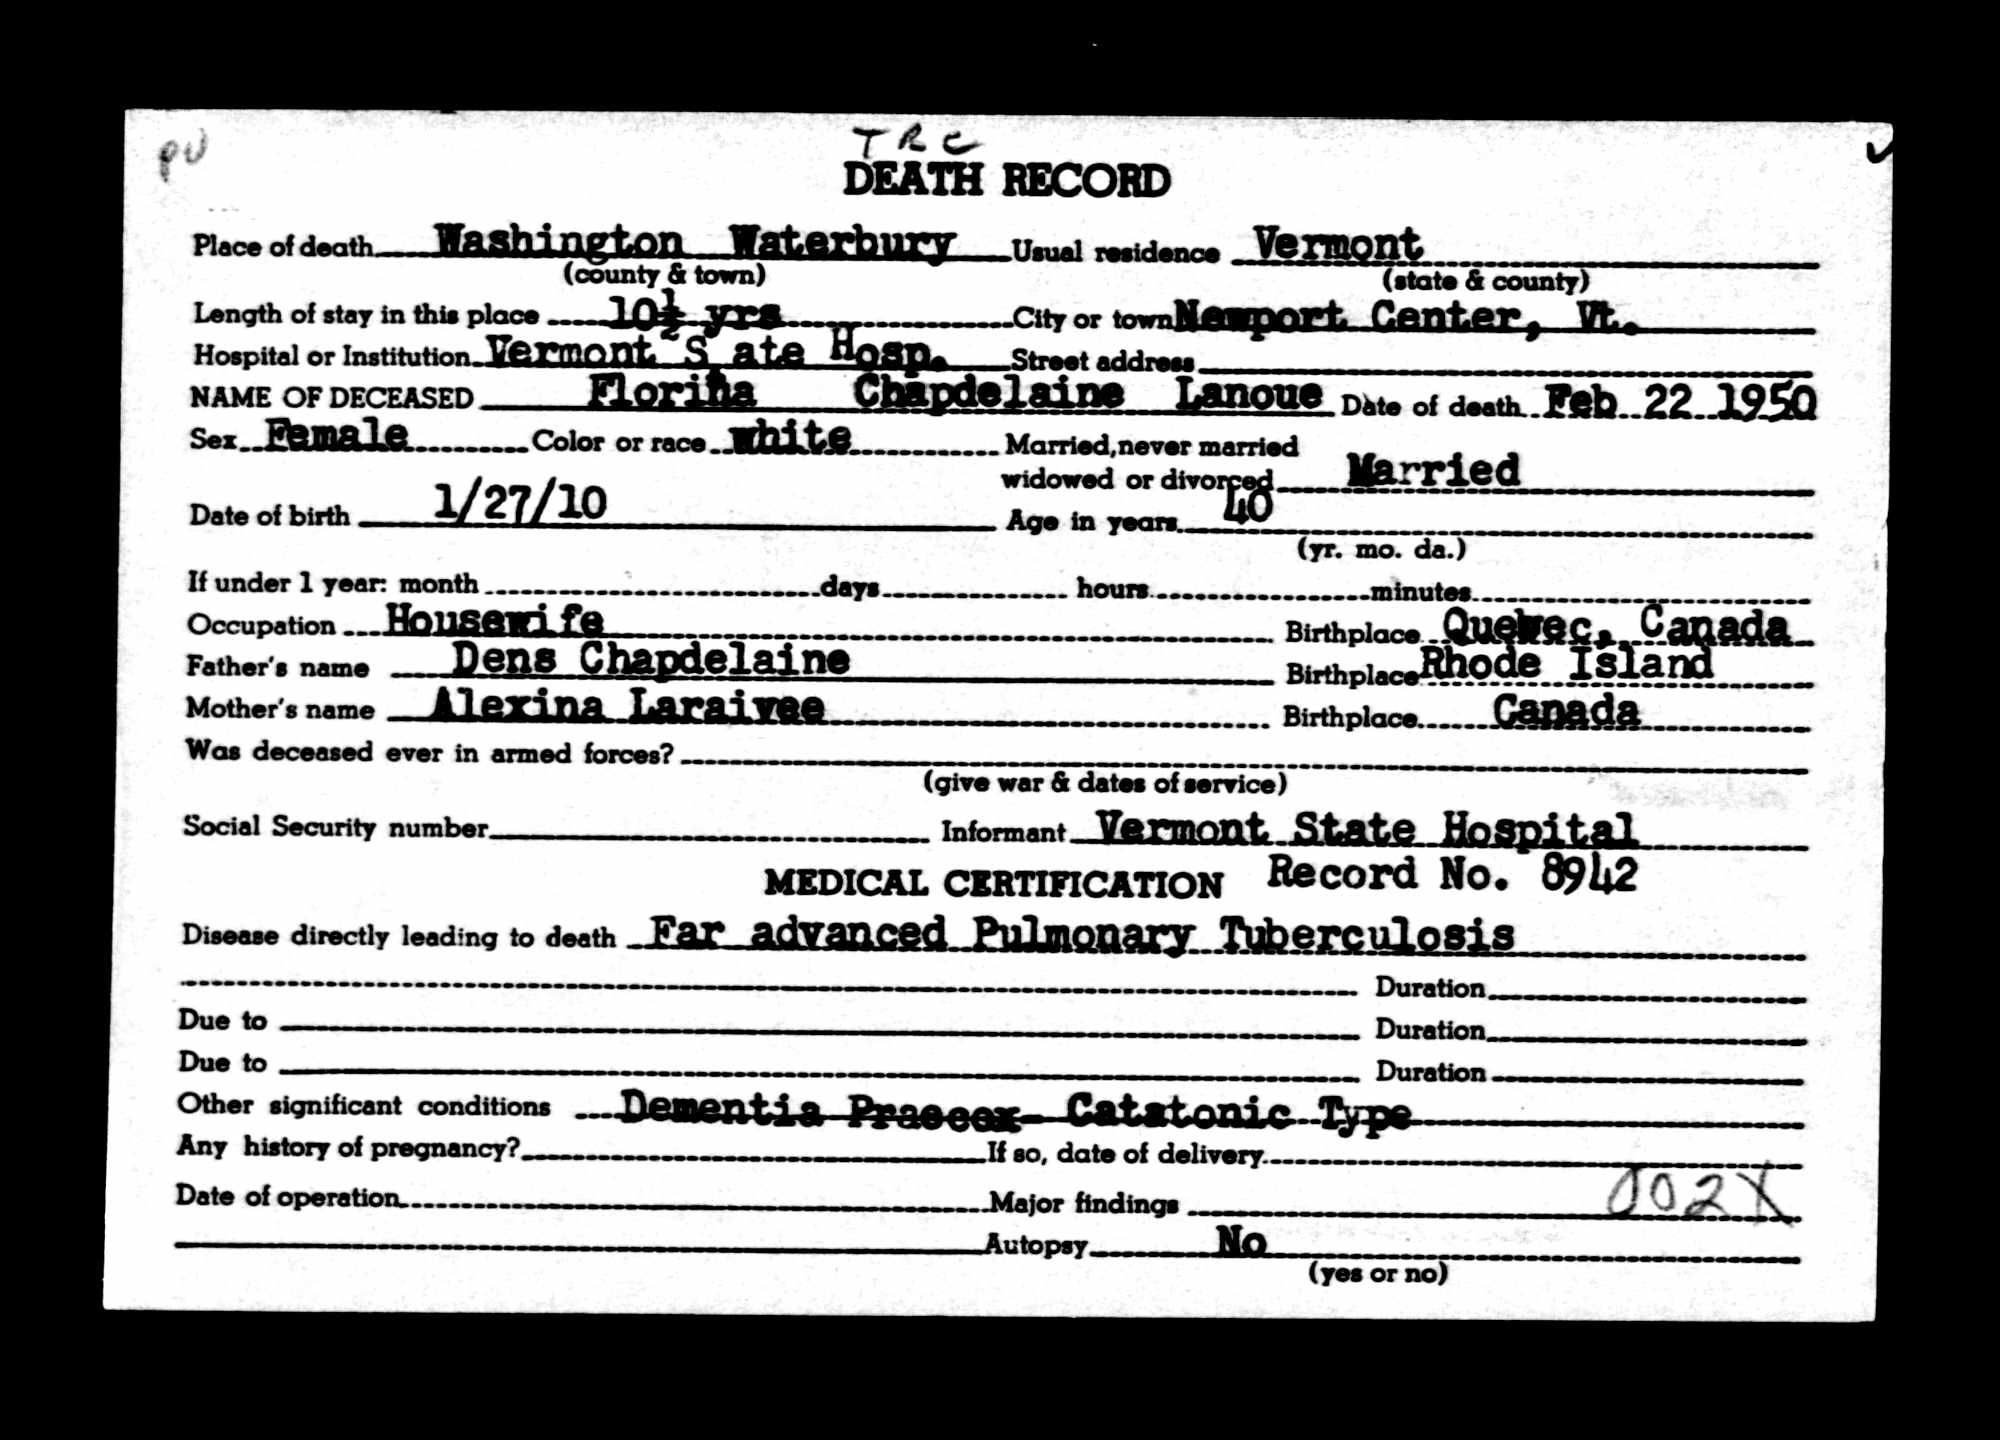 pu
TRC
DEATH RECORD
Place of death Washington Waterbury Usual residence Vermont
(county & town) (state & county)
Length of stay in this place 10½ yrs City or town Newport Center, Vt.
Hospital or Institution Vermont S ate Hosp. Street address
NAME OF DECEASED Florina Chapdelaine Lanoue Date of death Feb 22 1950
Sex Female Color or race white Married, never married
widowed or divorced Married
Date of birth 1/27/10 Age in years 40
(yr. mo. da.)
If under 1 year: month days hours minutes
Occupation Housewife Birthplace Quebec, Canada
Father's name Dens Chapdelaine Birthplace Rhode Island
Mother's name Alexina Laraivee Birthplace Canada
Was deceased ever in armed forces?
(give war & dates of service)
Social Security number Informant Vermont State Hospital
MEDICAL CERTIFICATION Record No. 8942
Disease directly leading to death Far advanced Pulmonary Tuberculosis
Duration
Due to Duration
Due to Duration
Other significant conditions Dementia Praecox- Catatonic Type
Any history of pregnancy? If so, date of delivery
Date of operation Major findings 002X
Autopsy No
(yes or no)